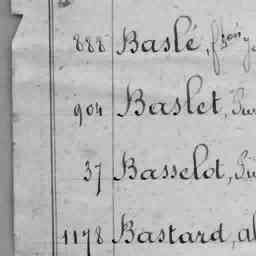 888 Baslé,
904 Baslet,
37 Basselot,
1178 Bastard,